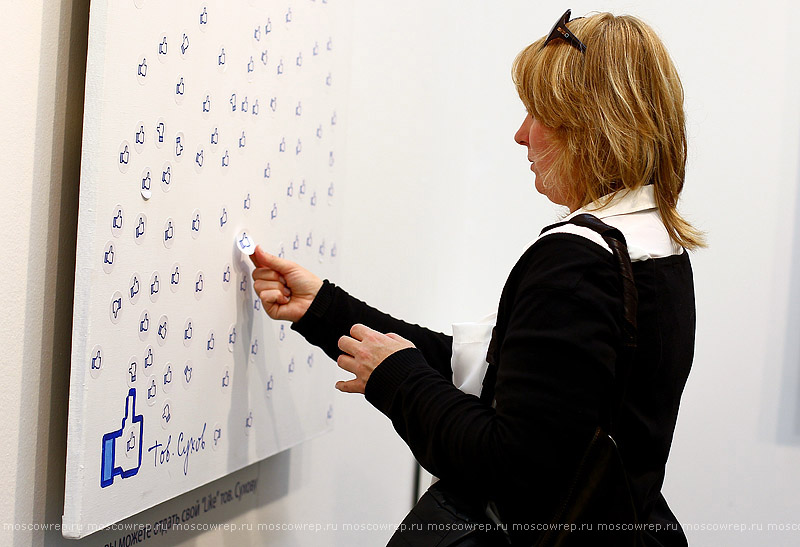 Тов. Сухов
вы можете отдать свой "Like" тов. Сухову
moscowrep.ru moscowrep.ru moscowrep.ru moscowrep.ru moscowrep.ru moscowrep.ru moscowrep.ru moscowrep.ru moscowrep.ru